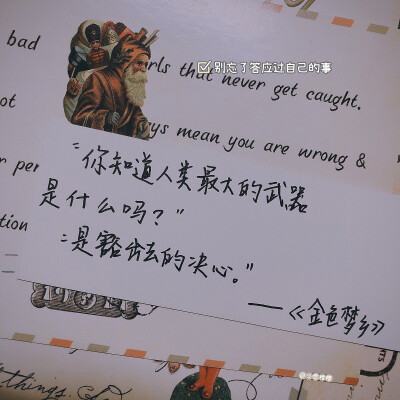 别忘了答应过自己的事
bad rls that never get caught.
ot ys mean you are wrong &
“你知道人类最大的武器
r per
是什么吗？”
tion
“是豁出去的决心。”
——《金色梦乡》
things.